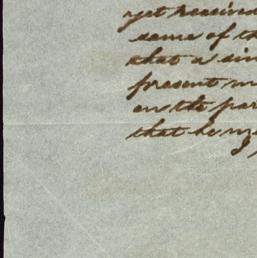 yet received
some of th
that a sin
present m
on the par
that he may
I